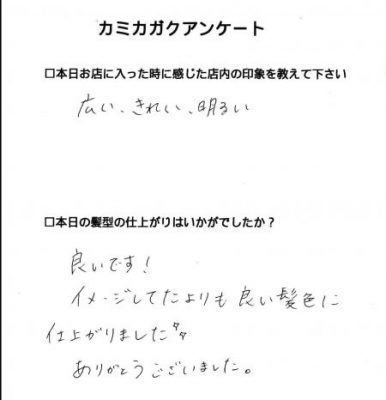 カミカガクアンケート
□本日お店に入った時に感じた店内の印象を教えて下さい
広い、きれい、明るい
□本日の髪型の仕上がりはいかがでしたか？
良いです!
イメージしてたよりも良い髪色に
仕上がりました
ありがとうございました。